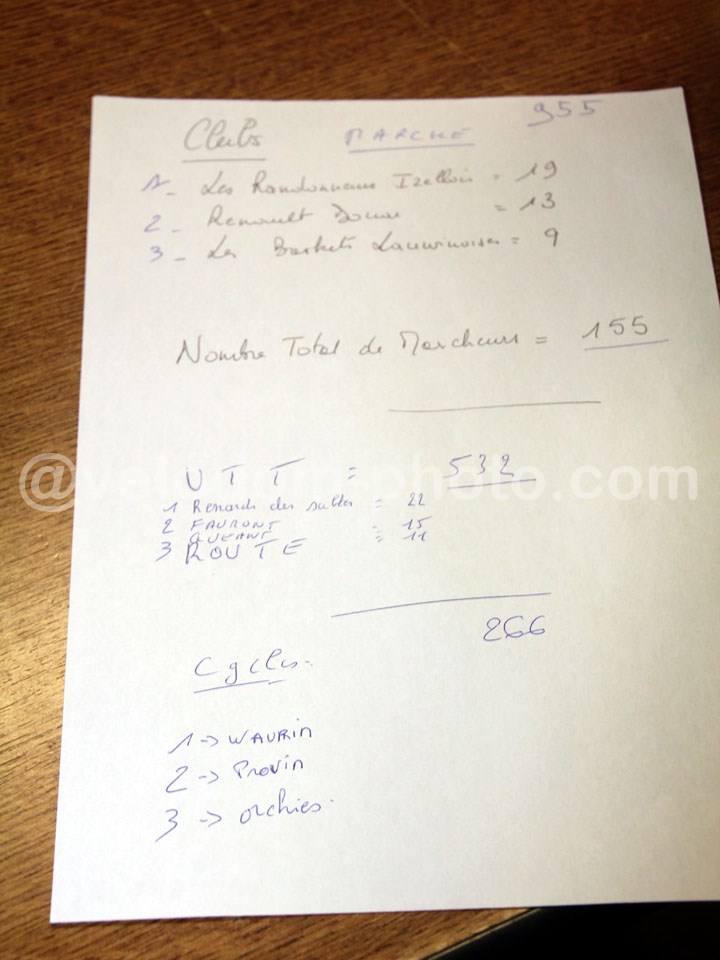 955
Clubs MARCHE
1- Les Randonneurs Izellois = 19
2- Renault Douai = 13
3- Les Baskets Lauwinoises = 9
Nombre Total de Marcheurs = 155
VTT = 532
1 Renards des sables = 22
2 FAUMONT = 15
QUEANT = 11
3 ROUTE
266
Cycles.
1 -> WAVRIN
2 -> Provin
3 -> Orchies.